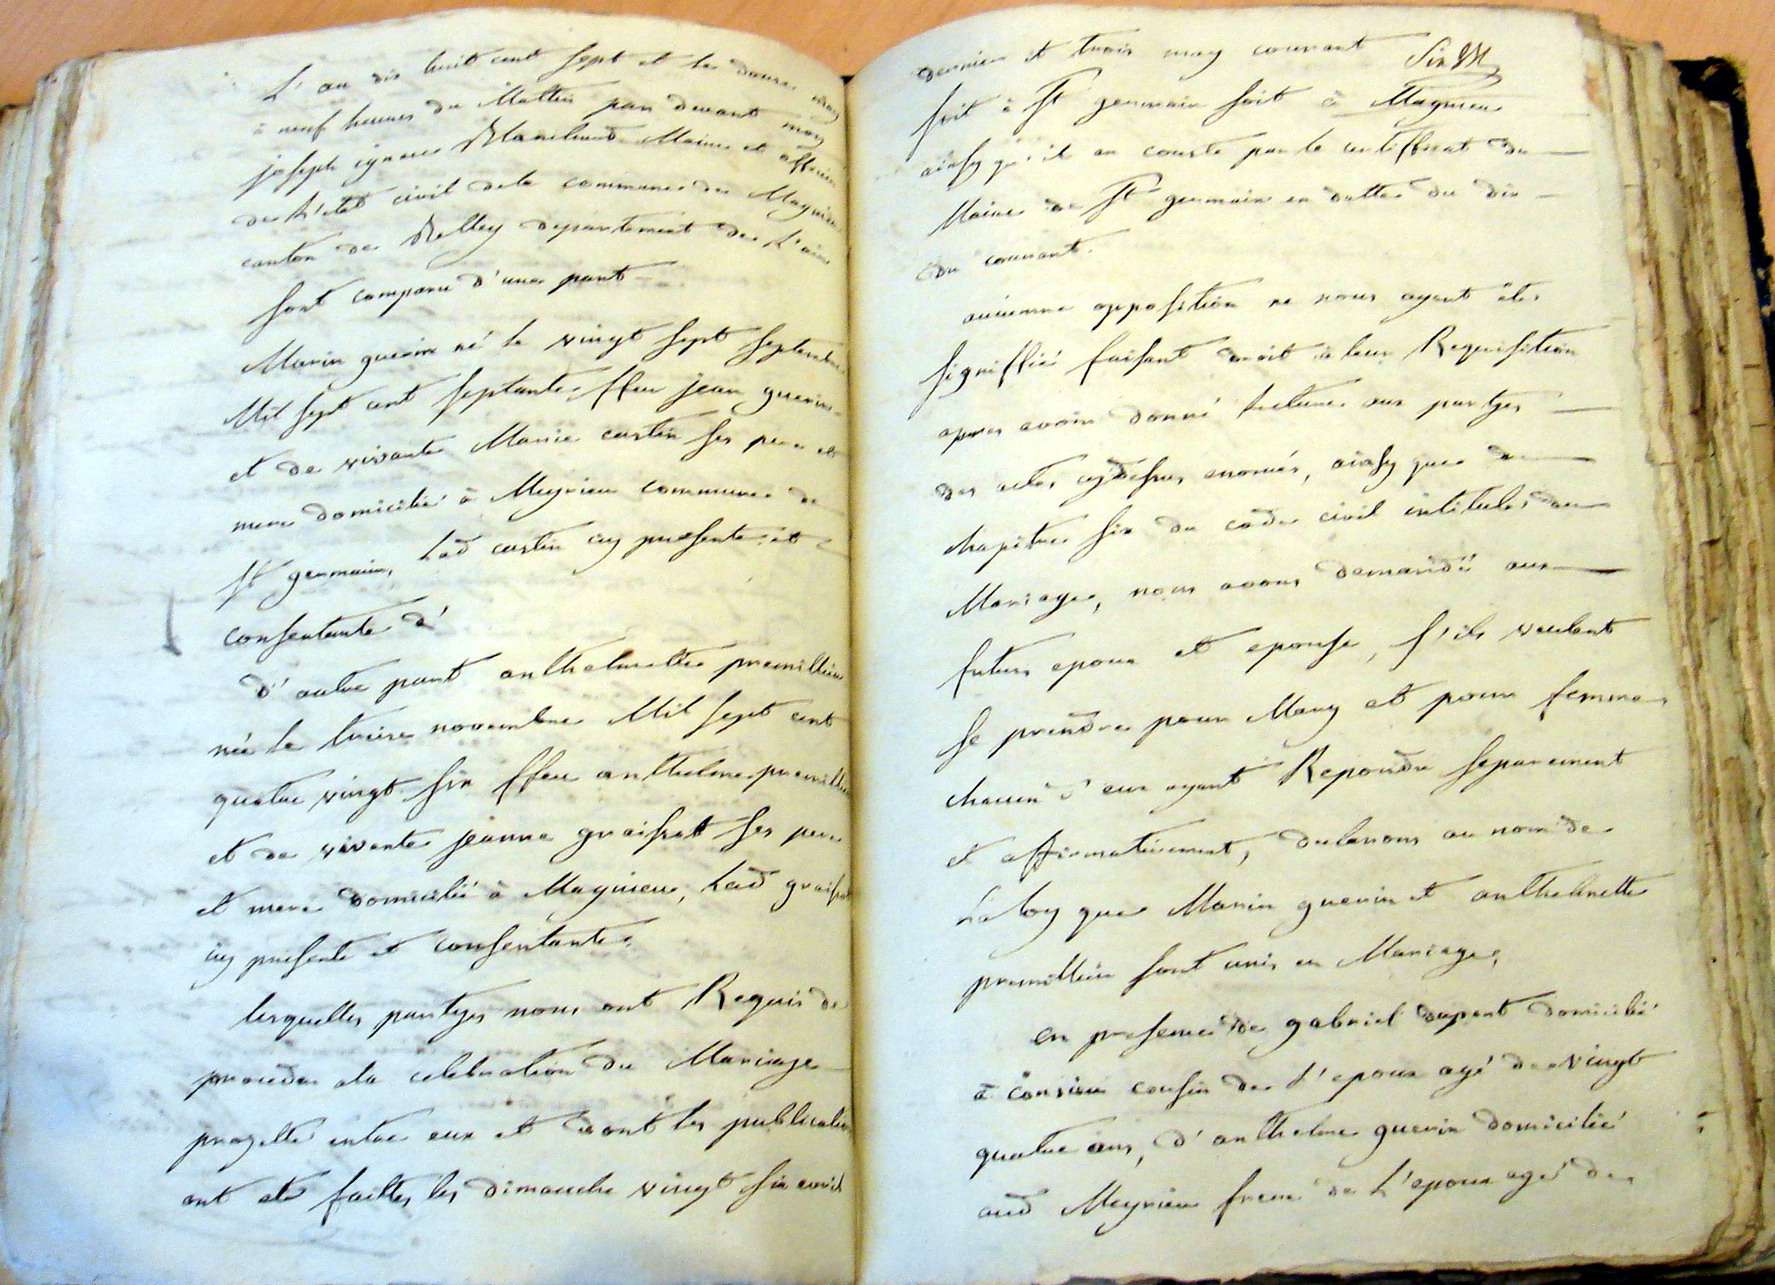 L'an dix huit cent sept et le douze may
à neuf heures du Mattin par devant moy
joseph ignace Blanchard Maire et officier
de L'etat civil de la commune de Magnieu
canton de Belley departement de L'ain
sont comparu d'une part
Marin guerin né le vingt sept septembre
Mil sept cent septante, ffeu jean guerin
et de vivante Marie castin ses pere et
mere domicilié à Meyrieu commune de
St germain, Lad castin cy presente et
consentante d'
d'autre part anthelmette premillieu
née le treize novembre Mil sept cent
quatre vingt six ffeu anthelme premillieu
et de vivante jeanne graisat ses pere
et mere domicilié à Magnieu, Lad graisat
cy presente et consentante.
lesquelles partyes nous ont Requis de
proceder ala celebration du Mariage
projetté entre eux et dont les publication
ont eté faittes les dimanche vingt six avril
dernier et trois may courant
Six
soit à St germain soit à Magnieu
ainsy qu'il en conste par le certifficat du
Maire de St germain en datte du dix
du courant.
aucunne opposition ne nous ayant étés
signiffié faisant droit à leur Requisition
apres avoir donné lecture aux partyes
des actes cydessus enoncés, ainsy que du
chapitre six du code civil intitulés du
Mariage, nous avons demandé aux
futurs epoux et epouse, s'ils veulent
se prendre pour Mary et pour femme
chacun d'eux ayant Repondu separement
et affirmativement, declarons au nom de
La loy que Marin guerin et anthelmette
premillieu sont unis en Mariage,
en presence de gabriel dupont domicilié
à consieu cousin de L'epoux agé de vingt
quatre ans, d'anthelme guerin domicilié
aud Meyrieu frere de L'epoux agé de